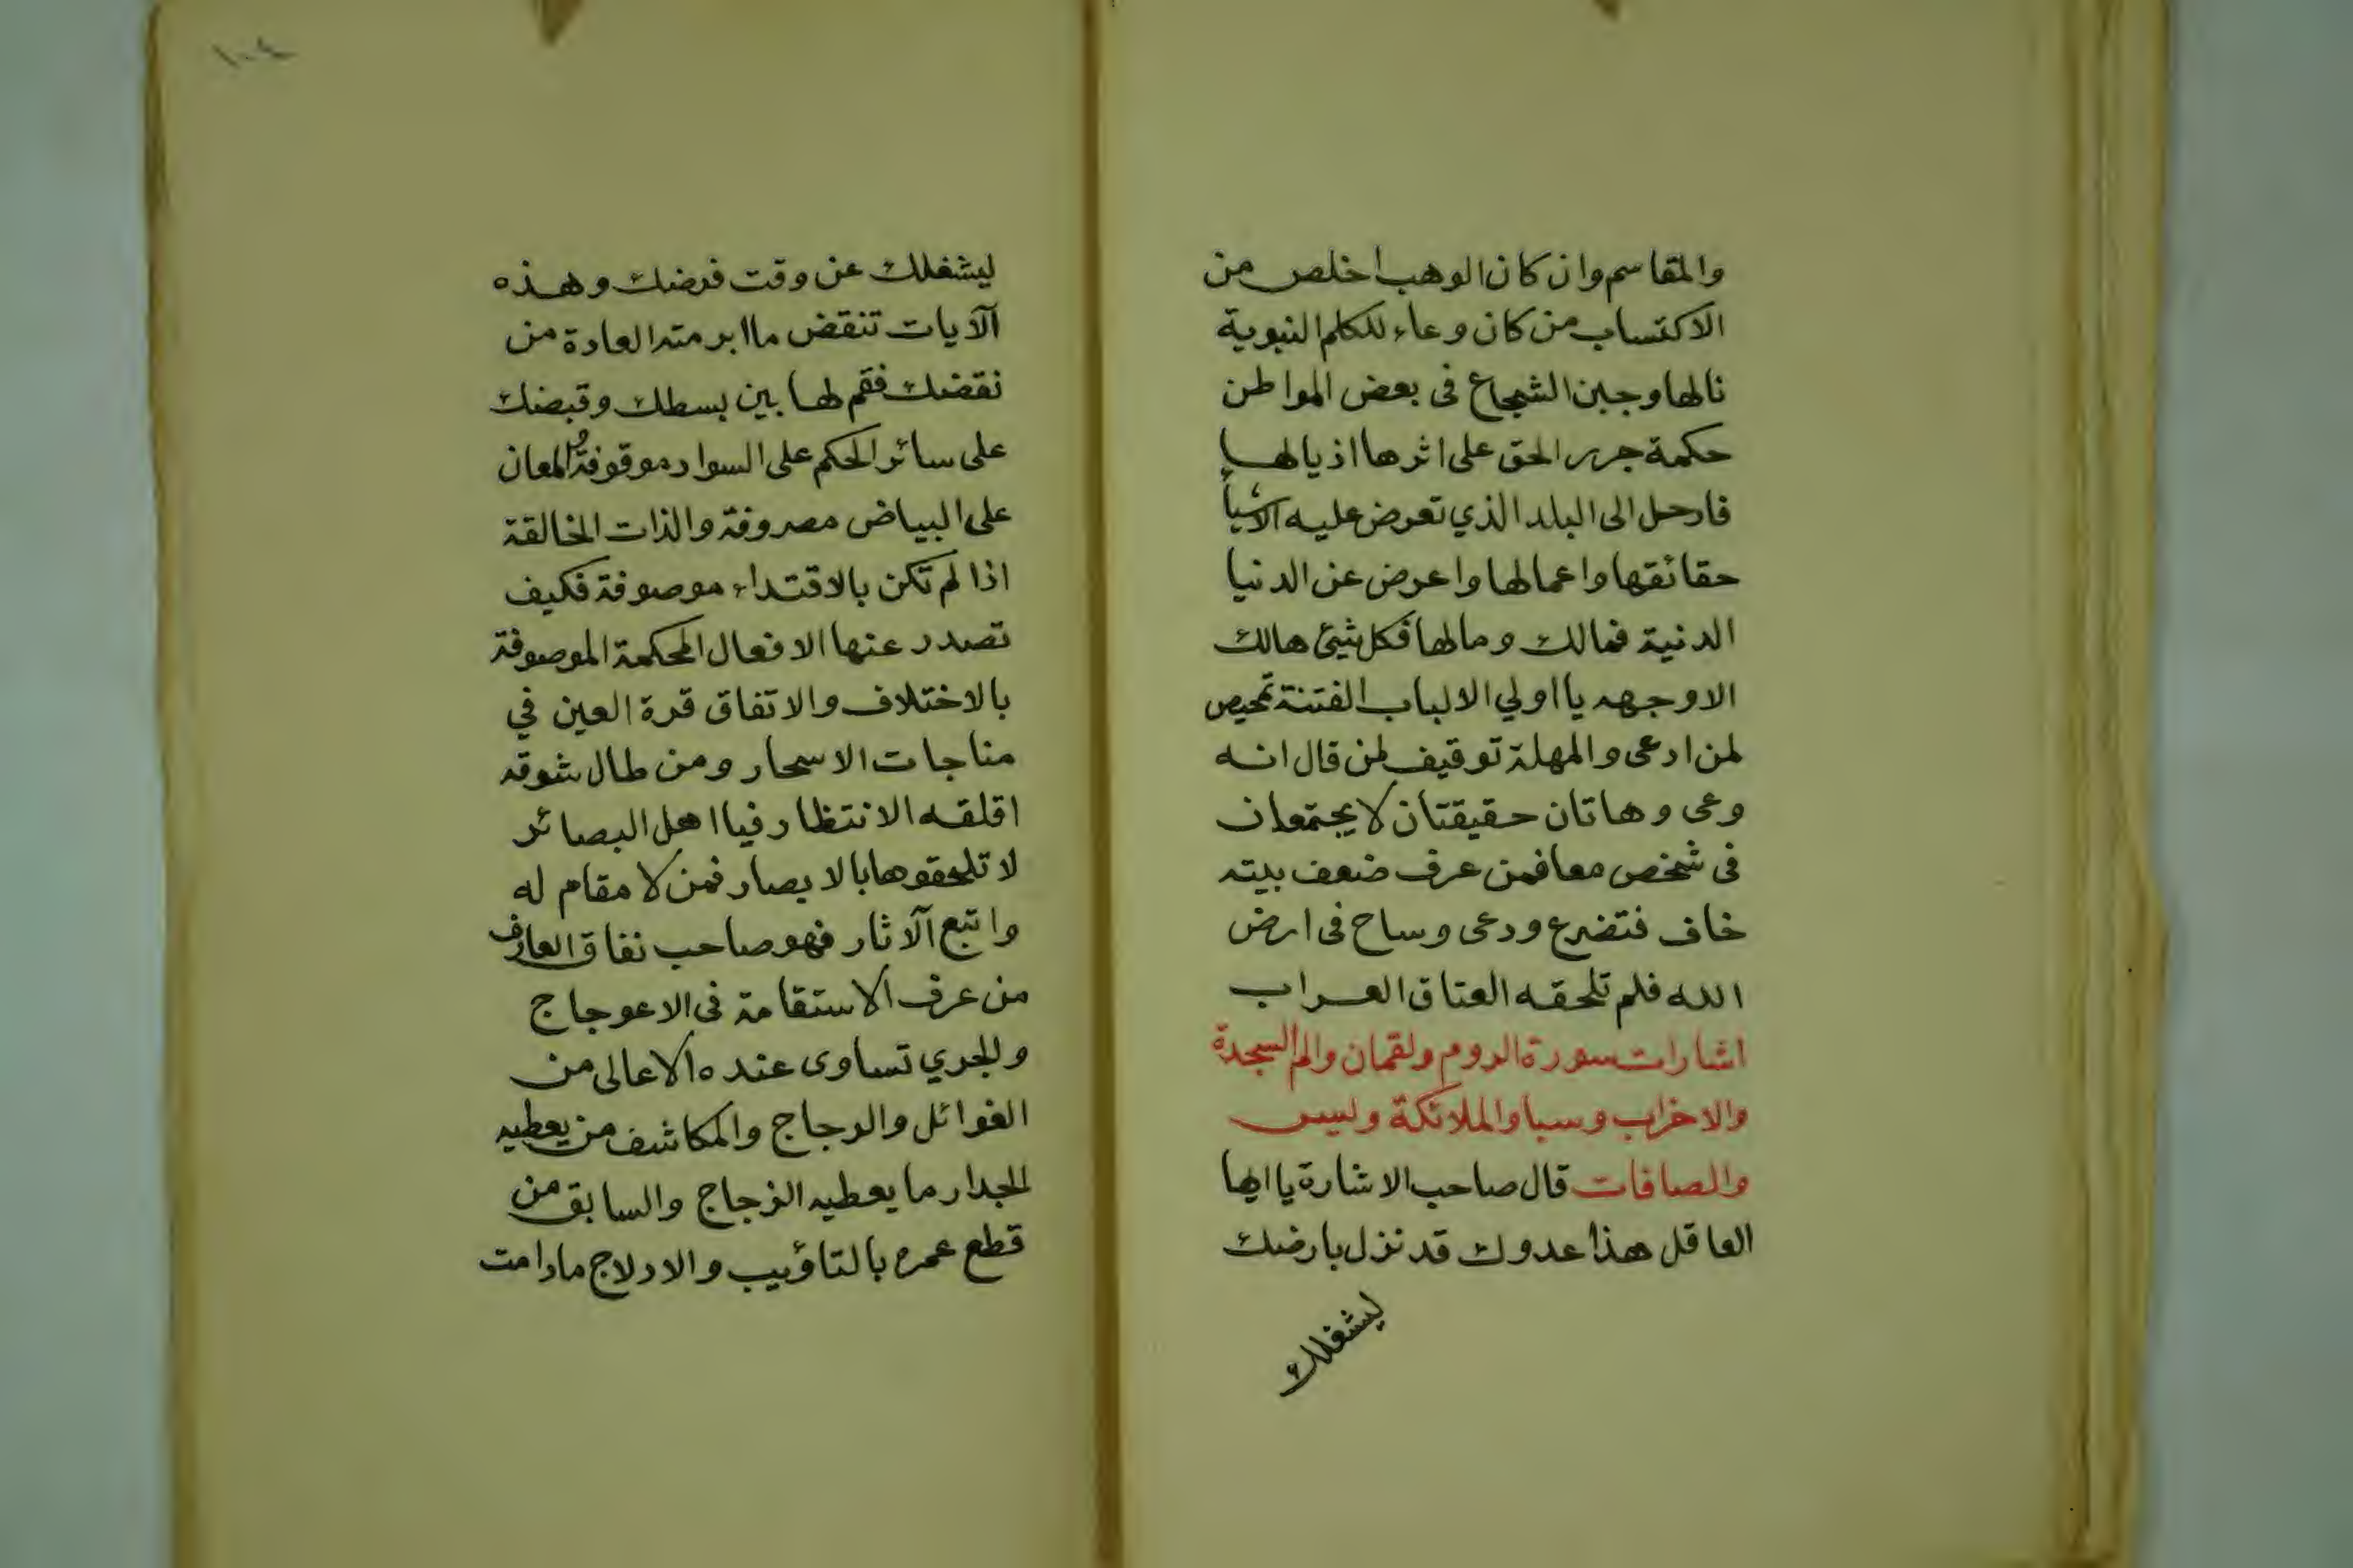 والمقاسم وان كان الوهب اخلص من
الاكتساب من كان وعاء للكلم النبوية
نالها وجبن الشجاع فى بعض المواطن
حكمة جرر الحق على اثرها اذيالها
فارحل الى البلد الذي تعرض عليه الاشيأ
حقائقها واعمالها واعرض عن الدنيا
الدنية فمالك ومالها فكل شيئ هالك
الا وجهه يا اولي الالباب الفتنة تمحيص
لمن ادعى والمهلة توقيف لمن قال انه
وعى وهاتان حقيقتان لا يجتمعان
فى شخص معا فمن عرف ضعف بيته
خاف فتضرع ودعى وساح فى ارض
الله فلم تلحقه العتاق العراب
اشارات سورة الروم ولقمان والم السجدة
والاخراب وسبا والملائكة وليس
والصافات قال صاحب الاشارة يا ايها
العاقل هذا عدوك قد نزل بارضك
ليشغلك
١٠٤
ليشغلك عن وقت فرضك وهذه
الآيات تنقض ما ابرمته العادة من
نقضك فقم لها بين بسطك وقبضك
على سائر الحكم على السواد موقوفة المعان
على البياض مصروفة والذات الخالقة
اذا لم تكن بالاقتداء موصوفة فكيف
تصدر عنها الافعال المحكمة الموصوفة
بالاختلاف والاتفاق قرة العين في
مناجات الاسحار ومن طال شوقه
اقلقه الانتظار فيا اهل البصائر
لا تلحقوها بالابصار فمن لا مقام له
واتبع الآثار فهو صاحب نفاق العارف
من عرف الاستقامة فى الاعوجاج
والجري تساوى عنده الاعالى من
الغوائل والدجاج والمكاشف من يعطيه
الجدار ما يعطيه الزجاج والسابق من
قطع عمره بالتاؤيب والادلاج مادامت